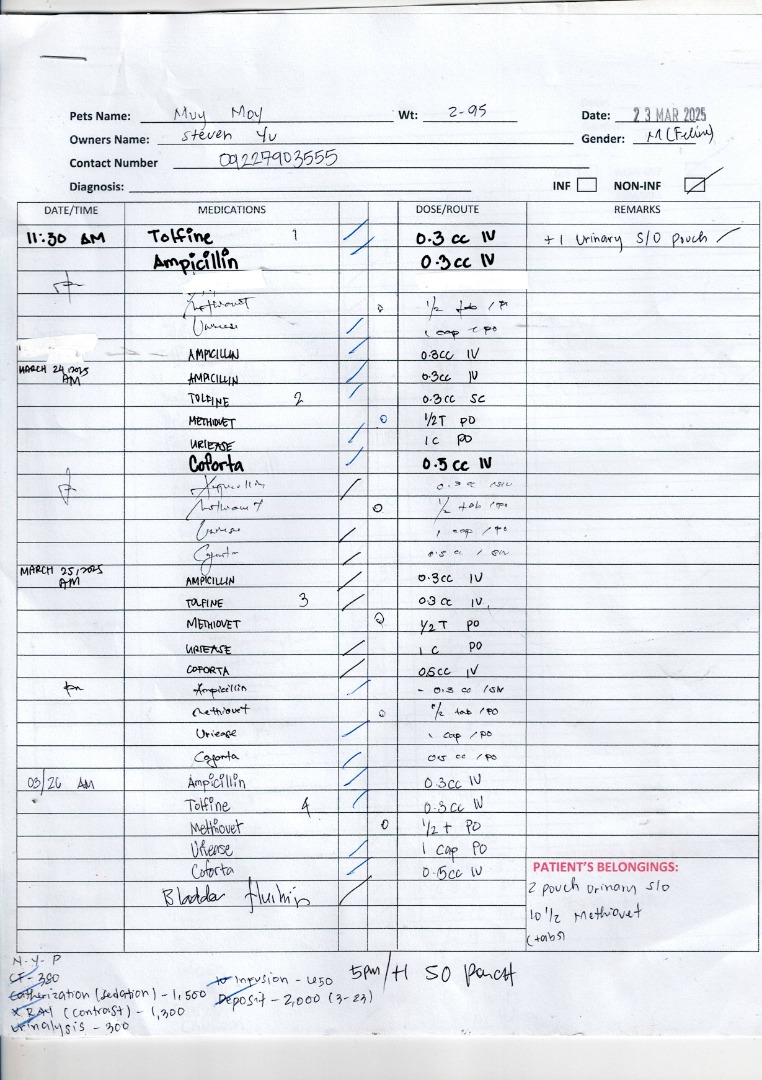 Pets Name: Muy Moy Wt: 2-95 Date: 23 MAR 2025
Owners Name: Steven Yu Gender: M (Feline)
Contact Number 09227903555
Diagnosis: INF NON-INF
DATE/TIME MEDICATIONS DOSE/ROUTE REMARKS
11:30 AM Tolfine 1 0.3 cc IV +1 Urinary S/O Pouch
Ampicillin 0.3cc IV
1/2 tab / PO
1 cap PO
AMPICILLIN 0.3cc IV
MARCH 24, 2025
AM AMPICILLIN 0.3cc IV
TOLFINE 2 0.3cc SC
METHIOVET 1/2T PO
URIEASE 1C PO
Coforta 0.5 cc IV
Ampicillin 0.3 cc
1/2 tab / PO
1 cap / PO
0.5 cc
MARCH 25, 2025
AM AMPICILLIN 0.3cc IV
TOLFINE 3 0.3cc IV
METHIOVET 1/2 T PO
URIEASE 1 C PO
COFORTA 0.5cc IV
Ampicillin 0.3 cc
Methiovet 1/2 tab / PO
Uriease 1 cap / PO
Coforta 0.5 cc / PO
03/26 AM Ampicillin 0.3cc IV
Tolfine 4 0.3cc IV
Methiovet 1/2 t PO
Uriease 1 cap PO
Coforta 0.5cc IV
Bladder
PATIENT'S BELONGINGS:
2 pouch urinary s/o
10 1/2 Methiovet
(tabs)
N-Y-P
CF - 380
Catherization (sedation) - 1,500
X RAY (contrast) - 1,300
Urinalysis - 300
IV Infusion - 450
Deposit - 2,000 (3-23)
5pm/+1 SO Pouch